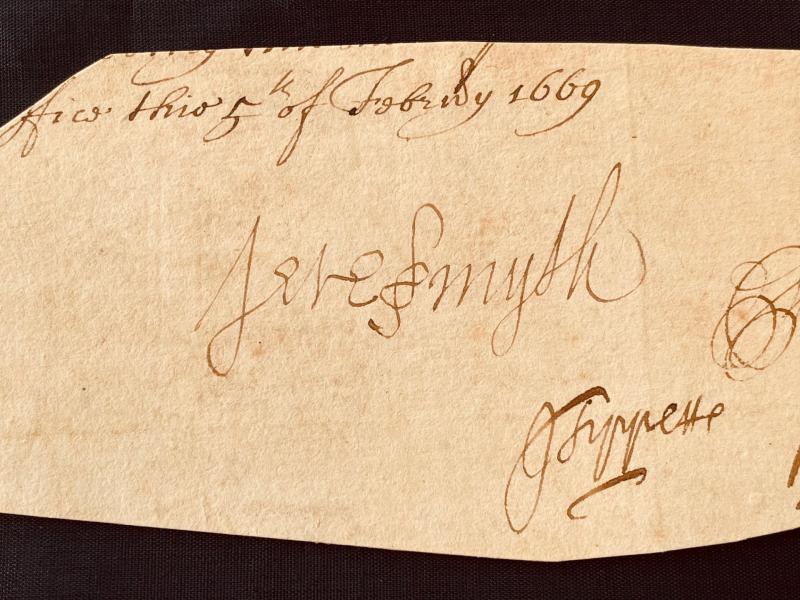 ffice this 5th of Febru̅y 1669
Jere Smyth
J Tippetts